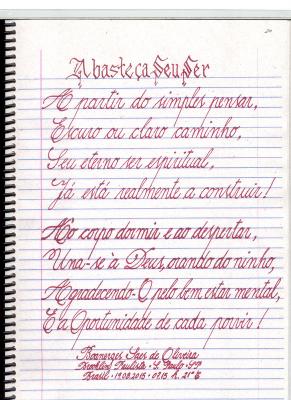 Abasteça Seu Ser
A partir do simples pensar,
Escuro ou claro caminho,
Seu eterno ser espiritual,
Já está realmente a construir!
Ao corpo dormir e ao despertar,
Una-se à Deus, orando do ninho,
Agradecendo-O pelo bem estar mental,
E a Oportunidade de cada porvir!
Boanerges Saes de Oliveira
Brooklin Paulista - S. Paulo - SP
Brasil - 19.08.2015 -